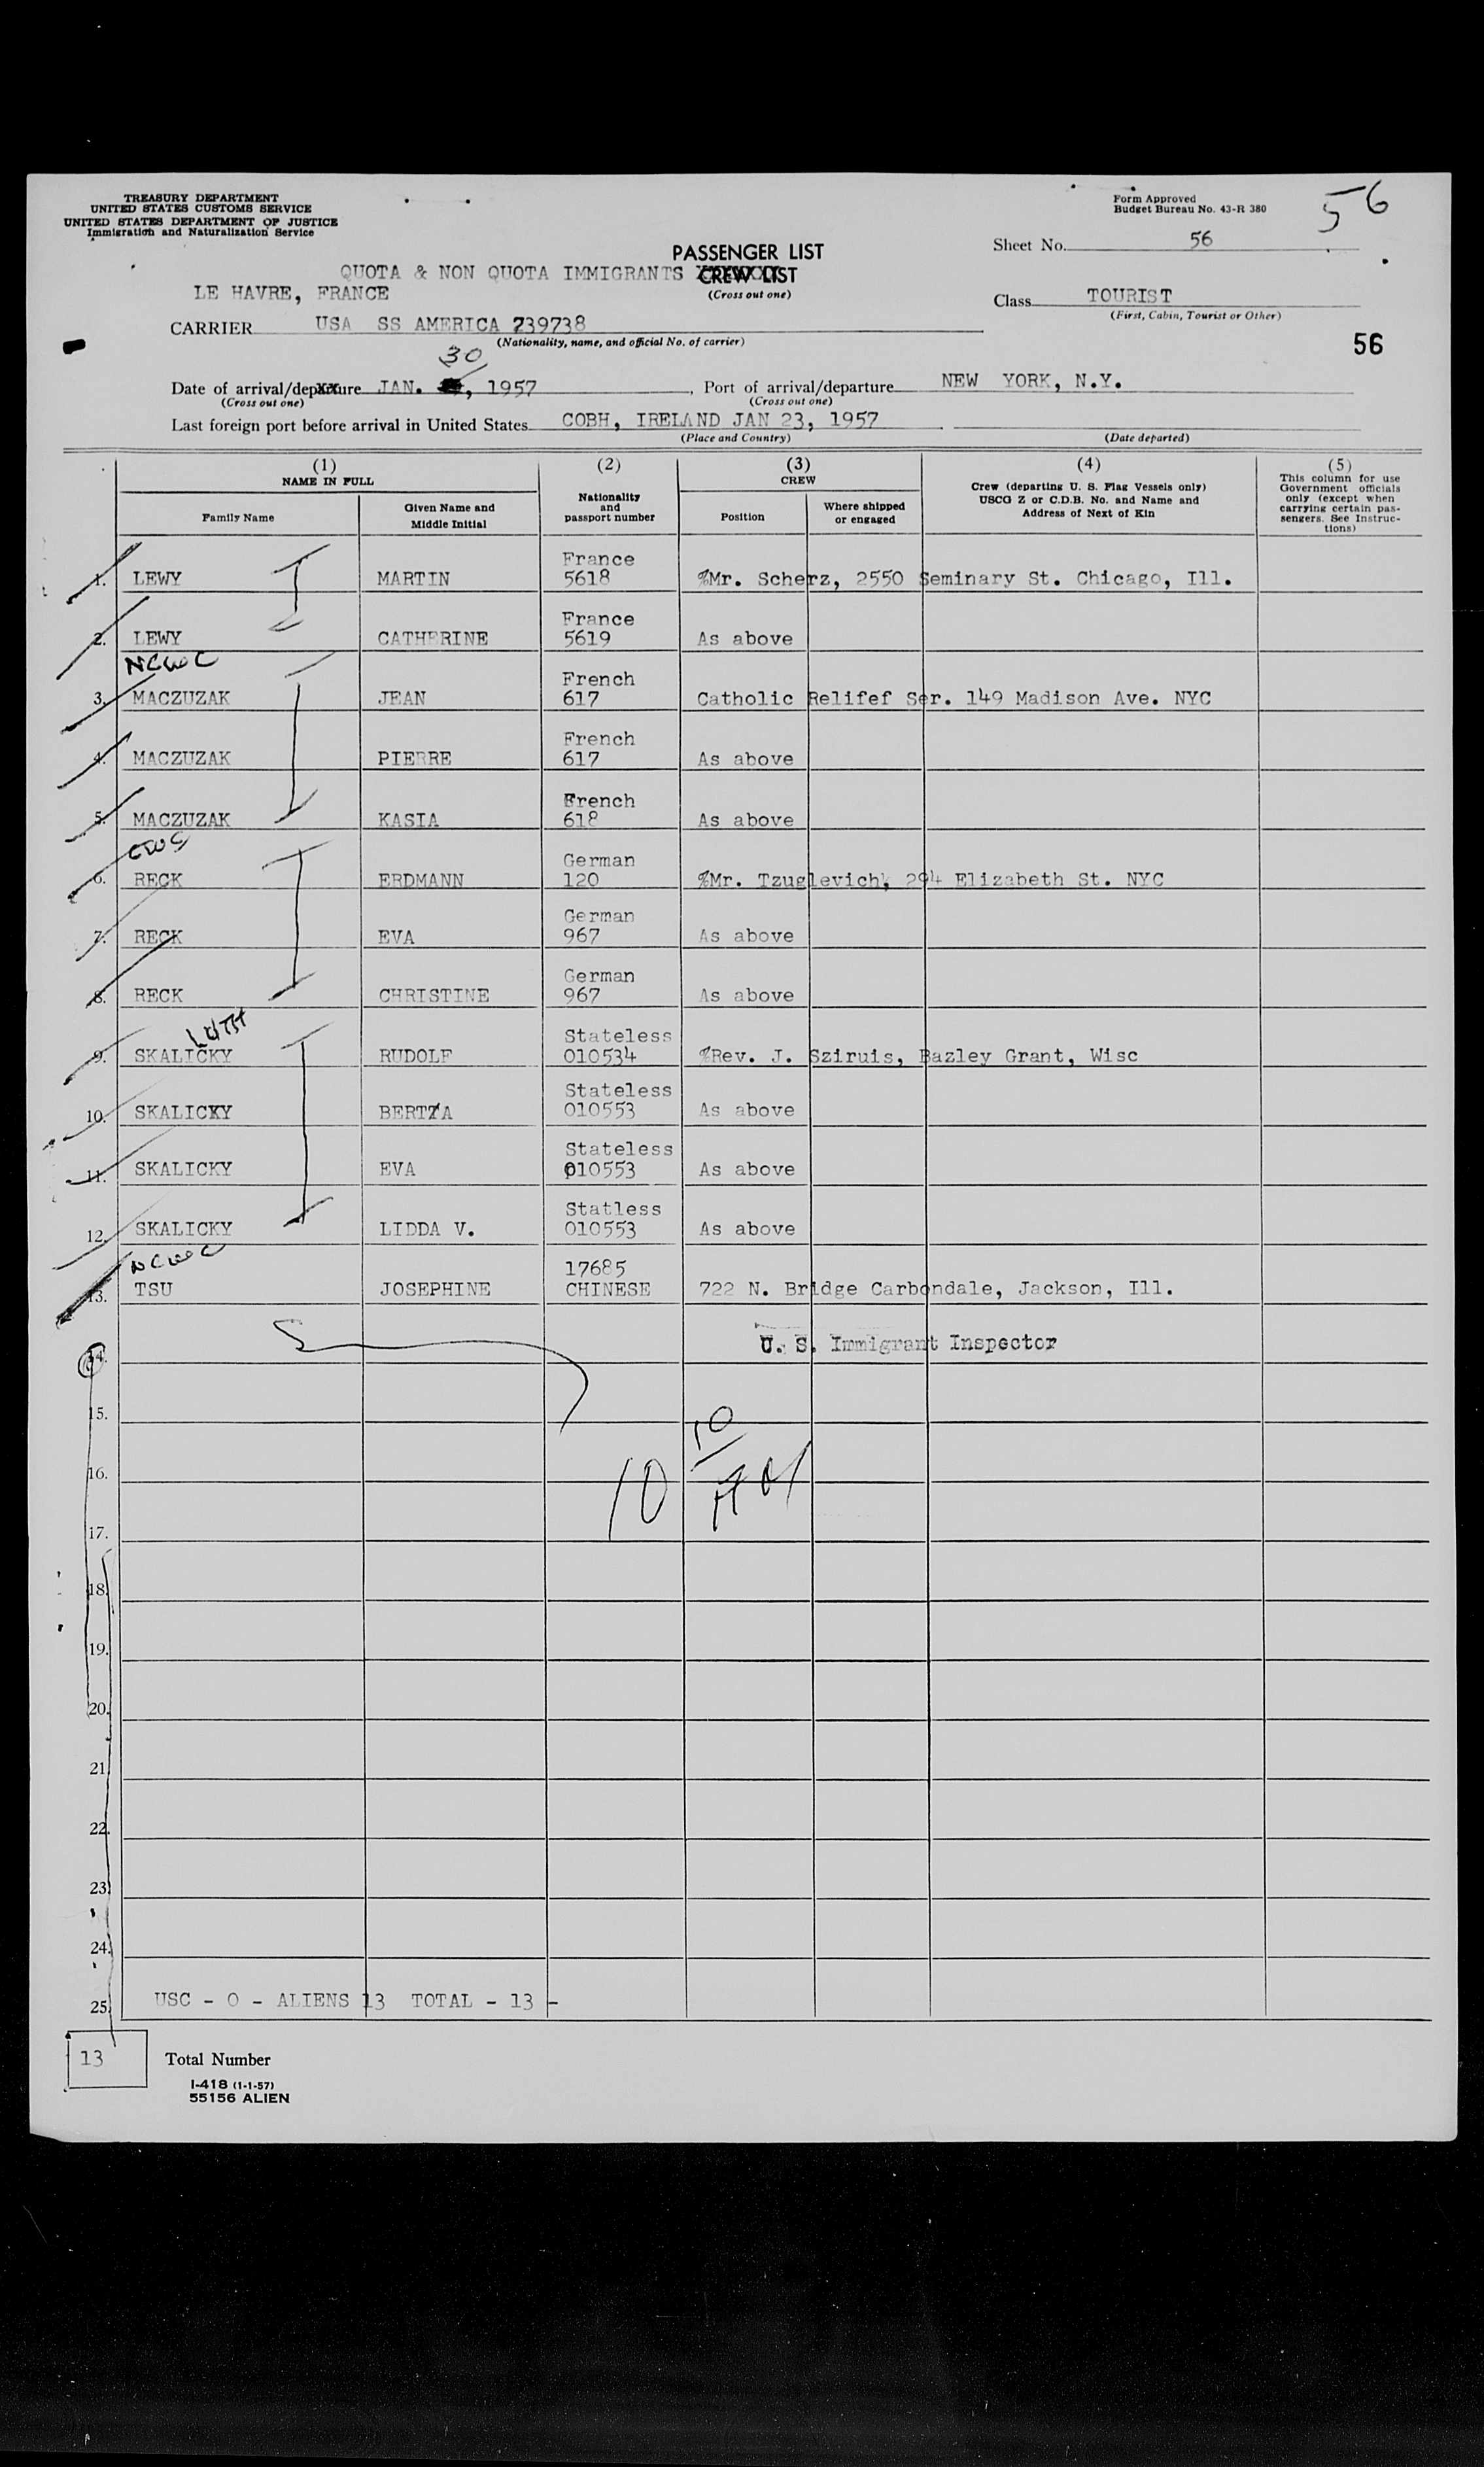 TREASURY DEPARTMENT
UNITED STATES CUSTOMS SERVICE
UNITED STATES DEPARTMENT OF JUSTICE
Immigration and Naturalization Service
Form Approved
Budget Bureau No. 43-R 380
56
Sheet No. 56
PASSENGER LIST
QUOTA & NON QUOTA IMMIGRANTS CREW LIST
(Cross out one)
LE HAVRE, FRANCE
Class TOURIST
(First, Cabin, Tourist or Other)
CARRIER USA SS AMERICA 239738
(Nationality, name, and official No. of carrier)
56
30
Date of arrival/departure JAN. , 1957, Port of arrival/departure NEW YORK, N.Y.
(Cross out one) (Cross out one)
Last foreign port before arrival in United States COBH, IRELAND JAN 23, 1957
(Place and Country) (Date departed)
(1) (2) (3) (4) (5)
NAME IN FULL
Family Name
Given Name and Middle Initial
Nationality and passport number
CREW
Position
Where shipped or engaged
Crew (departing U. S. Flag Vessels only)
USCG Z or C.D.B. No. and Name and
Address of Next of Kin
This column for use
Government officials
only (except when
carrying certain pas-
sengers. See Instruc-
tions)
France
1. LEWY MARTIN 5618 %Mr. Scherz, 2550 Seminary St. Chicago, Ill.
France
2. LEWY CATHERINE 5619 As above
NCWC
French
3. MACZUZAK JEAN 617 Catholic Relifef Ser. 149 Madison Ave. NYC
French
4. MACZUZAK PIERRE 617 As above
French
5. MACZUZAK KASIA 618 As above
German
6. RECK ERDMANN 120 %Mr. Tzuglevich, 294 Elizabeth St. NYC
German
7. RECK EVA 967 As above
German
8. RECK CHRISTINE 967 As above
LUTH
Stateless
9. SKALICKY RUDOLF 010534 %Rev. J. Sziruis, Bazley Grant, Wisc
Stateless
10. SKALICKY BERTA 010553 As above
Stateless
11. SKALICKY EVA 010553 As above
Statless
12. SKALICKY LIDDA V. 010553 As above
NCWC
17685
13. TSU JOSEPHINE CHINESE 722 N. Bridge Carbondale, Jackson, Ill.
U. S. Immigrant Inspector
14.
15.
10
16.
10
17.
18.
19.
20.
21.
22.
23.
24.
25. USC - 0 - ALIENS 13 TOTAL - 13 -
13 Total Number
I-418 (1-1-57)
55156 ALIEN